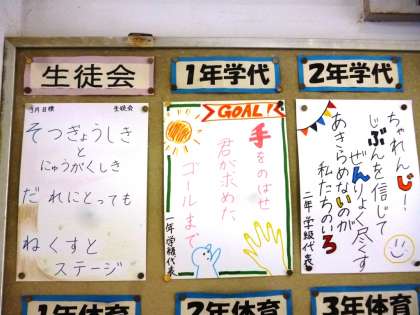 生徒会
1年学代
2年学代
3月目標 生徒会
そつぎょうしき
と
にゅうがくしき
だれにとっても
ねくすと
ステージ
GOAL!
手をのばせ
君が求めた
ゴールまで
一年学級代表
ちゃれんじ!
じぶんを信じて
ぜんりょく尽くす
あきらめないのが
私たちのいろ
二年学級代表
1年体育
2年体育
3年体育